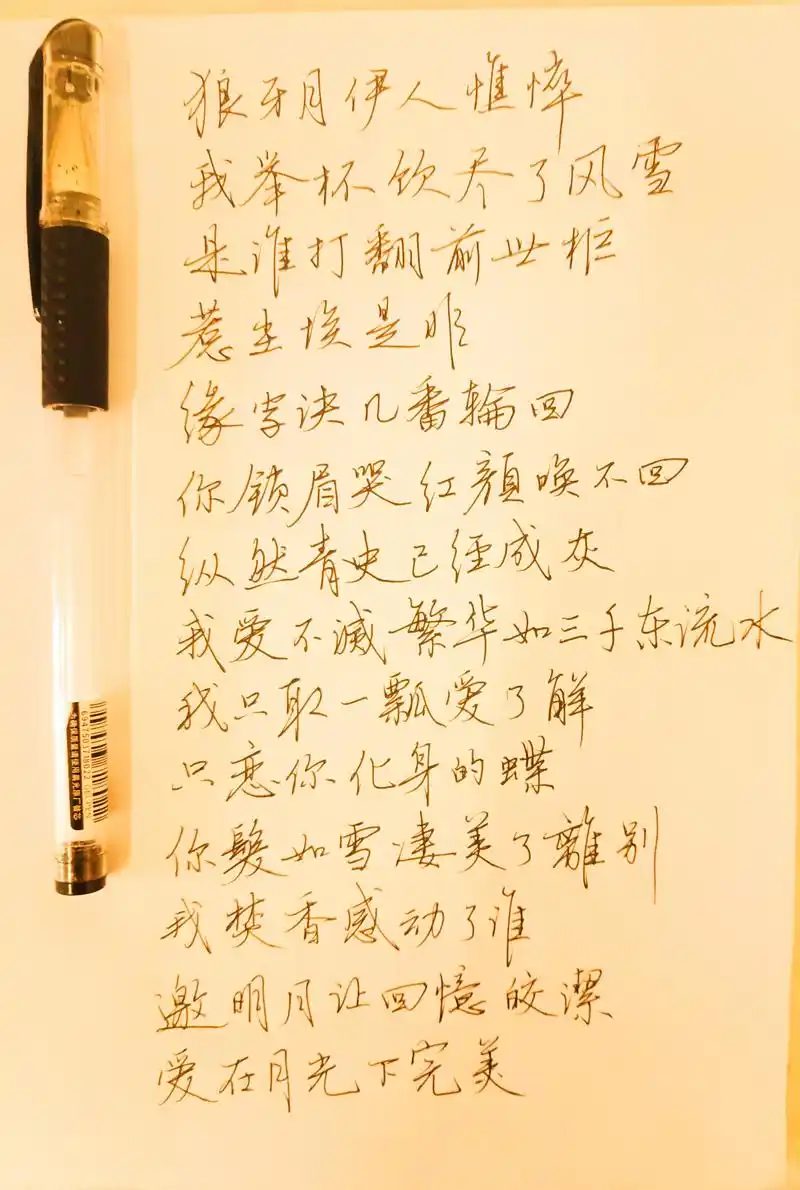 狼牙月伊人憔悴
我举杯饮尽了风雪
是谁打翻前世柜
惹尘埃是非
缘字诀几番輪回
你锁眉哭红顔唤不回
纵然青史已经成灰
我爱不滅繁华如三千东流水
我只取一瓢爱了解
只恋你化身的蝶
你髮如雪凄美了離别
我焚香感动了谁
邀明月让回憶皎潔
爱在月光下完美